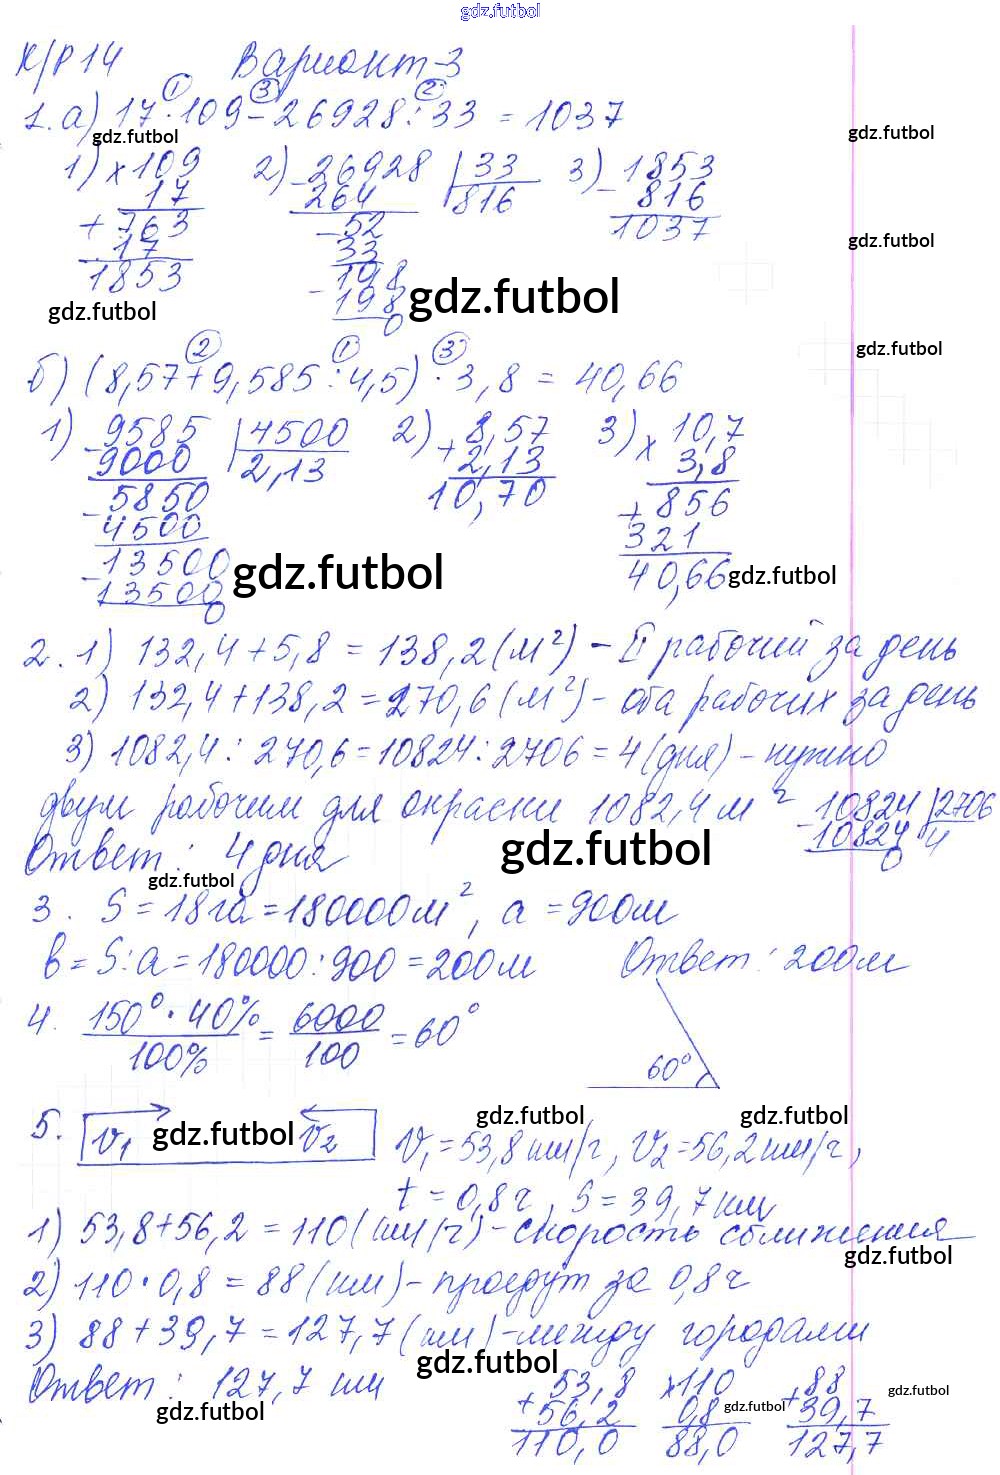 gdz.futbol
К/Р 14 Вариант 3
① ③ ②
1. а) 17 · 109 − 26928 : 33 = 1037
gdz.futbol gdz.futbol
1) × 109 2) − 26928 | 33 3) − 1853
17 264 816 816
+ 763 − 52 1037
17 33 gdz.futbol
1853 − 198
gdz.futbol 198 gdz.futbol
0
② ① ③ gdz.futbol
б) (8,57 + 9,585 : 4,5) · 3,8 = 40,66
1) − 9585 | 4500 2) + 8,57 3) × 10,7
9000 2,13 2,13 3,8
− 5850 10,70 + 856
4500 321
− 13500 gdz.futbol 40,66 gdz.futbol
13500
0
2. 1) 132,4 + 5,8 = 138,2 (м²) – II рабочий за день
2) 132,4 + 138,2 = 270,6 (м²) – оба рабочих за день
3) 1082,4 : 270,6 = 10824 : 2706 = 4 (дня) – нужно
двум рабочим для окраски 1082,4 м² − 10824 | 2706
10824 4
Ответ: 4 дня gdz.futbol 0
gdz.futbol
3. S = 18 га = 180000 м², a = 900 м
b = S : a = 180000 : 900 = 200 м Ответ: 200 м
4. 150° · 40% / 100% = 6000 / 100 = 60°
60°
5. v₁ gdz.futbol v₂ gdz.futbol gdz.futbol
v₁ = 53,8 км/ч, v₂ = 56,2 км/ч,
t = 0,8 ч, S = 39,7 км
1) 53,8 + 56,2 = 110 (км/ч) – скорость сближения
gdz.futbol
2) 110 · 0,8 = 88 (км) – проедут за 0,8 ч
3) 88 + 39,7 = 127,7 (км) – между городами
gdz.futbol
Ответ: 127,7 км + 53,8 × 110 + 88 gdz.futbol
gdz.futbol 56,2 0,8 gdz.futbol 39,7
110,0 88,0 127,7